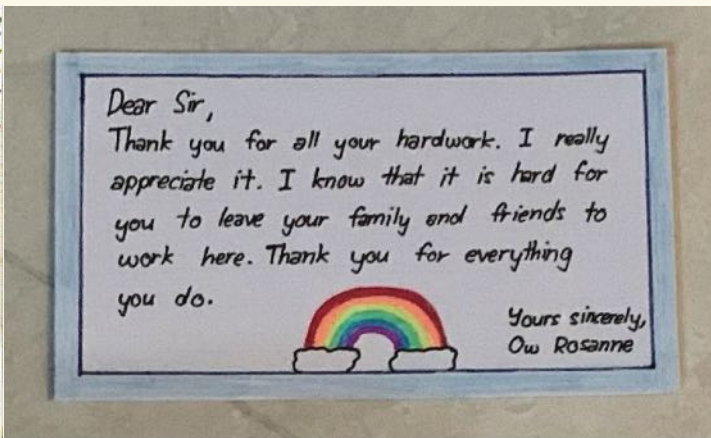 Dear Sir,
Thank you for all your hardwork. I really
appreciate it. I know that it is hard for
you to leave your family and friends to
work here. Thank you for everything
you do.
Yours sincerely,
Ow Rosanne